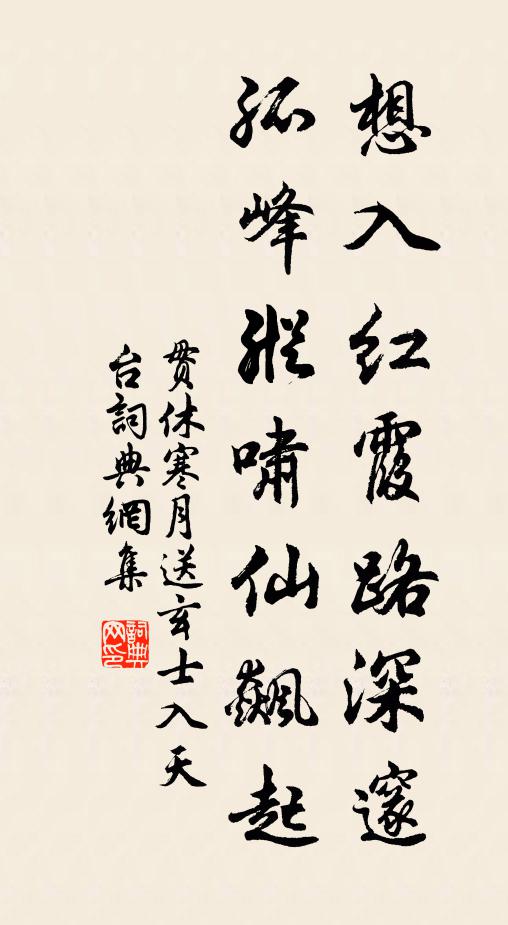 想入红霞路深邃
孤峰縱嘯仙飆起
贯休寒月送玄士入天
台詞典網集
詞典
网印